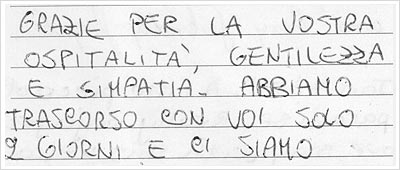 GRAZIE PER LA VOSTRA
OSPITALITA', GENTILEZZA
E SIMPATIA. ABBIAMO
TRASCORSO CON VOI SOLO
2 GIORNI E CI SIAMO